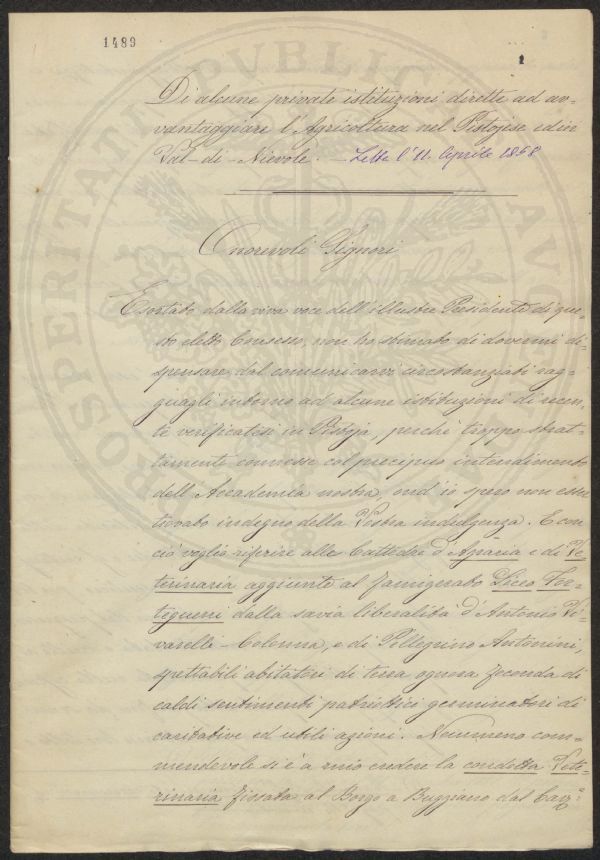 1489
1
Di alcune private istituzioni dirette ad av-
vantaggiare l'Agricoltura nel Pistojese ed in
Val-di-Nievole. - Letta l'11. Aprile 1868
Onorevoli Signori
Esortato dalla viva voce dell'illustre Presidente di que-
sto eletto Consesso, non ho stimato di dovermi di-
spensare dal comunicarvi circostanziati rag-
guagli intorno ad alcune istituzioni di recen-
te verificatesi in Pistoja, perchè troppo stret-
tamente connesse col precipuo intendimento
dell'Accademia nostra, ond'io spero non esser
trovato indegno della Vostra indulgenza. E con
ciò voglio riferire alle Cattedre d'Apiaria e di Ve-
terinaria aggiunte al famigerato Liceo For-
teguerri dalla savia liberalità d'Antonio Vi-
varelli-Colonna, e di Pellegrino Antonini,
spettabili abitatori di terra ognora feconda di
caldi sentimenti patriottici germinatori di
caritative ed utili azioni. Neiumeno com-
mendevole si è a mio credere la condotta Vete-
rinaria fissata al Borgo a Buggiano dal Cav:
PROSPERITATI PVBLICAE